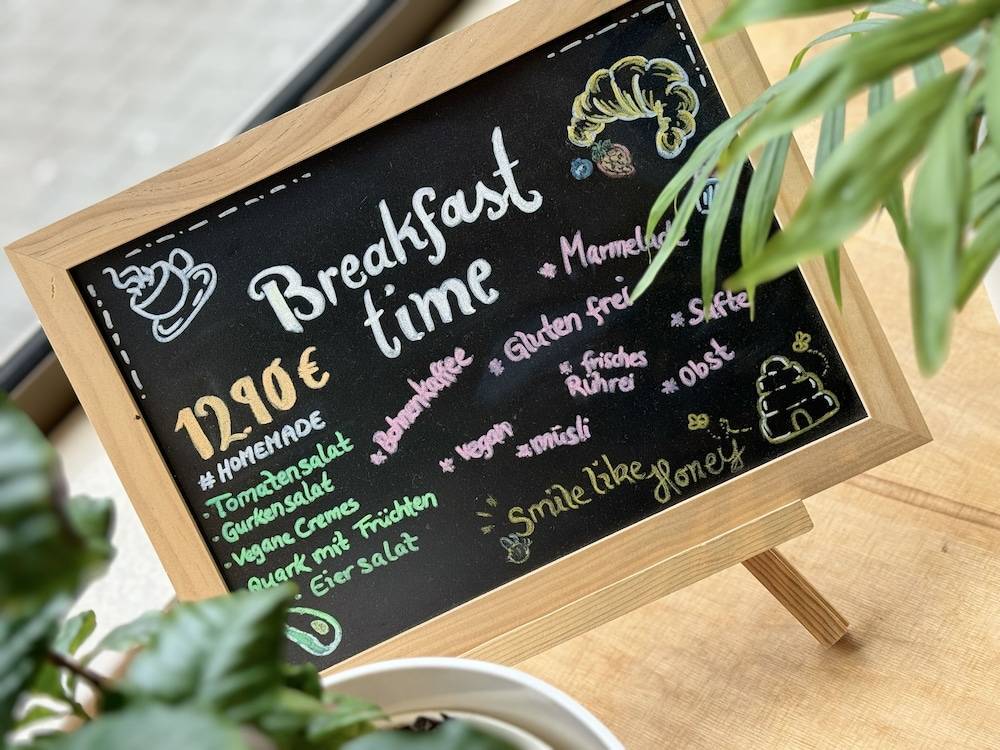 Breakfast
time
12,90 €
#HOMEMADE
- Tomatensalat
- Gurkensalat
- Vegane Cremes
Quark mit Früchten
- Eiersalat
* Marmelade
* Gluten frei
* Säfte
* frisches
Rührei
* Obst
* Bohnenkaffee
* Vegan
* müsli
Smile like Honey